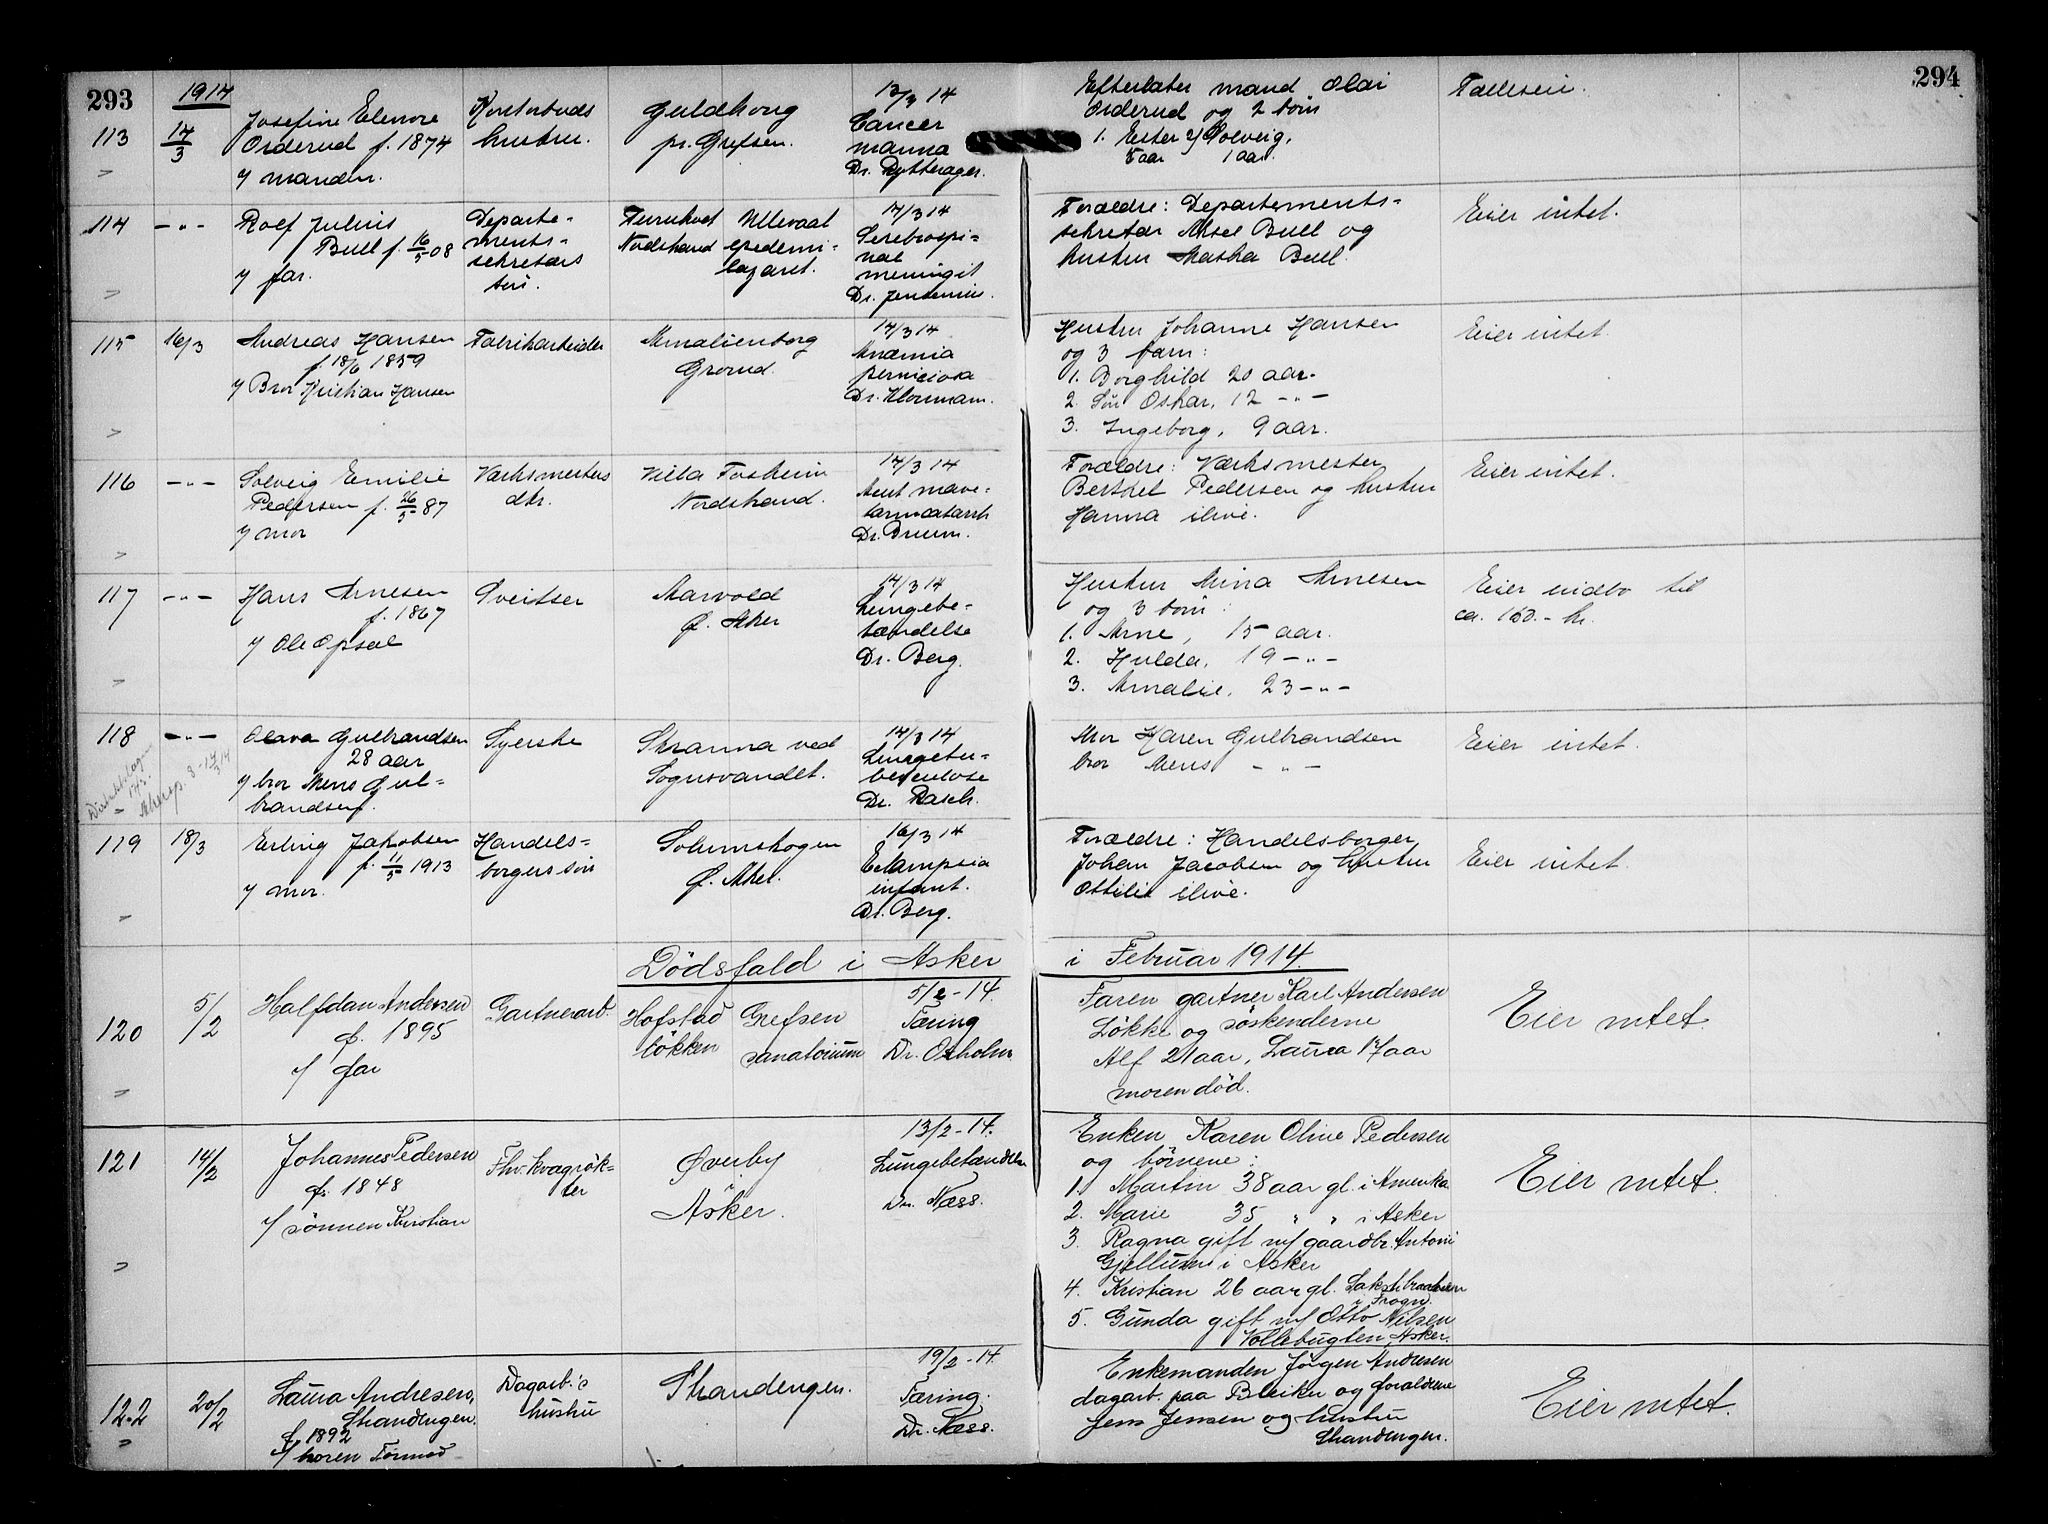 293
294
1914
113
17/3
Josefine Elenore
Orderud f. 1874
v/ manden.
Kontorbuds
hustru.
Guldhaug
pr. Grefsen.
13/3 14
Cancer
mamma
Dr. Rytterager.
Efterlater mand Olai
Orderud og 2 børn
1. Ester 2/ Solveig,
5 aar 1 aar.
Fælleseie.
114
- " -
Rolf Julius
Bull f. 16/5 08
v/ far.
Departe-
ments-
sekretærs
søn.
Furukol
Nordstrand
Ullevaal
epidemi-
lazaret.
14/3 14
Serebrospi-
nal
meningit
Dr. Jensenius.
Forældre: Departements-
sekretær Aksel Bull og
hustru Maska Bull.
Eier intet.
115
16/3
Andreas Hansen
f. 18/6 1859
v/ Bror Kristian Hansen
Fabrikarbeider
Amalienborg
Grorud.
14/3 14
Anæmia
perniciosa
Dr. Kloumann.
Hustru Johanne Hansen
og 3 barn:
1. Borghild 20 aar.
2. Søn Oskar, 12 - " -
3. Ingeborg, 9 aar.
Eier intet.
116
- " -
Solveig Emilie
Pedersen f. 26/5 - 87
v/ mor
Værksmesters
dtr.
Villa Fosheim
Nordstrand.
14/3 14
Acut mave-
tarmcatarrh
Dr. Bruun.
Forældre: Værksmester
Berthel Pedersen og hustru
Hanna ilive.
Eier intet.
117
- " -
Hans Arnesen
f. 1867
v/ Ole Opsal
Sveitser
Aarvold
Ø. Aker
14/3 14
Lungebe-
tændelse
Dr. Berg.
Hustru Mina Arnesen
og 3 børn:
1. Arne, 15 aar.
2. Hulda, 19 - " -
3. Amalie, 23 - " -
Eier indbo til
ca. 150.- kr.
118
- " -
Olava Gulbrandsen
28 aar
v/ bror Mens Gul-
brandsen.
Syerske
Skranna ved
Sognsvandet.
14/3 14
Lungetu-
berculose
Dr. Rasch.
Mor Karen Gulbrandsen
bror Mens - " -
Eier intet.
119
18/3
Erling Jakobsen
f. 11/5 1913
v/ mor.
Handels-
borgers søn
Solumskogen
Ø. Aker.
16/3 14
Eclampsia
infant.
Dr. Berg.
Forældre: Handelsborger
Johan Jacobsen og hustru
Ottilie ilive.
Eier intet.
Dödsfald i Asker i Februar 1914.
120
5/2
Halfdan Andersen
f. 1895
v/ far
Gartnerarb.
Hofstad
løkken
Grefsen
sanatorium
5/2 - 14.
Tæring
Dr. Oxholm
Faren gartner Karl Andersen
Løkke og søskenderne
Alf 21 aar, Laura 17 aar
moren død.
Eier intet.
121
14/2
Johannes Pedersen
f. 1848
v/ sønnen Kristian
Fhv. kvægrøk-
ter
Øverby
i
Asker.
13/2 - 14.
Lungebetændelse
Dr. Næss.
Enken Karen Oline Pedersen
og børnene:
1. Martin 38 aar gl. i Amerika
2. Marie 35 " " i Asker
3. Ragna gift m/ gaardbr. Antoni
Gjellum i Asker
4. Kristian 26 aar gl.
i Frogn.
5. Gunda gift m/ Otto Nilsen
Vollebugten, Asker.
Eier intet.
122
20/2
Laura Andresen,
Strandengen.
f. 1892
v/ broren Tormod
Dagarb.'s
hustru
Strandengen.
19/2 - 14.
Tæring.
Dr. Næss.
Enkemanden Jørgen Andresen
dagarb. paa Bleiker og forældrene
Jens Jensen og hustru
Strandengen.
Eier intet.